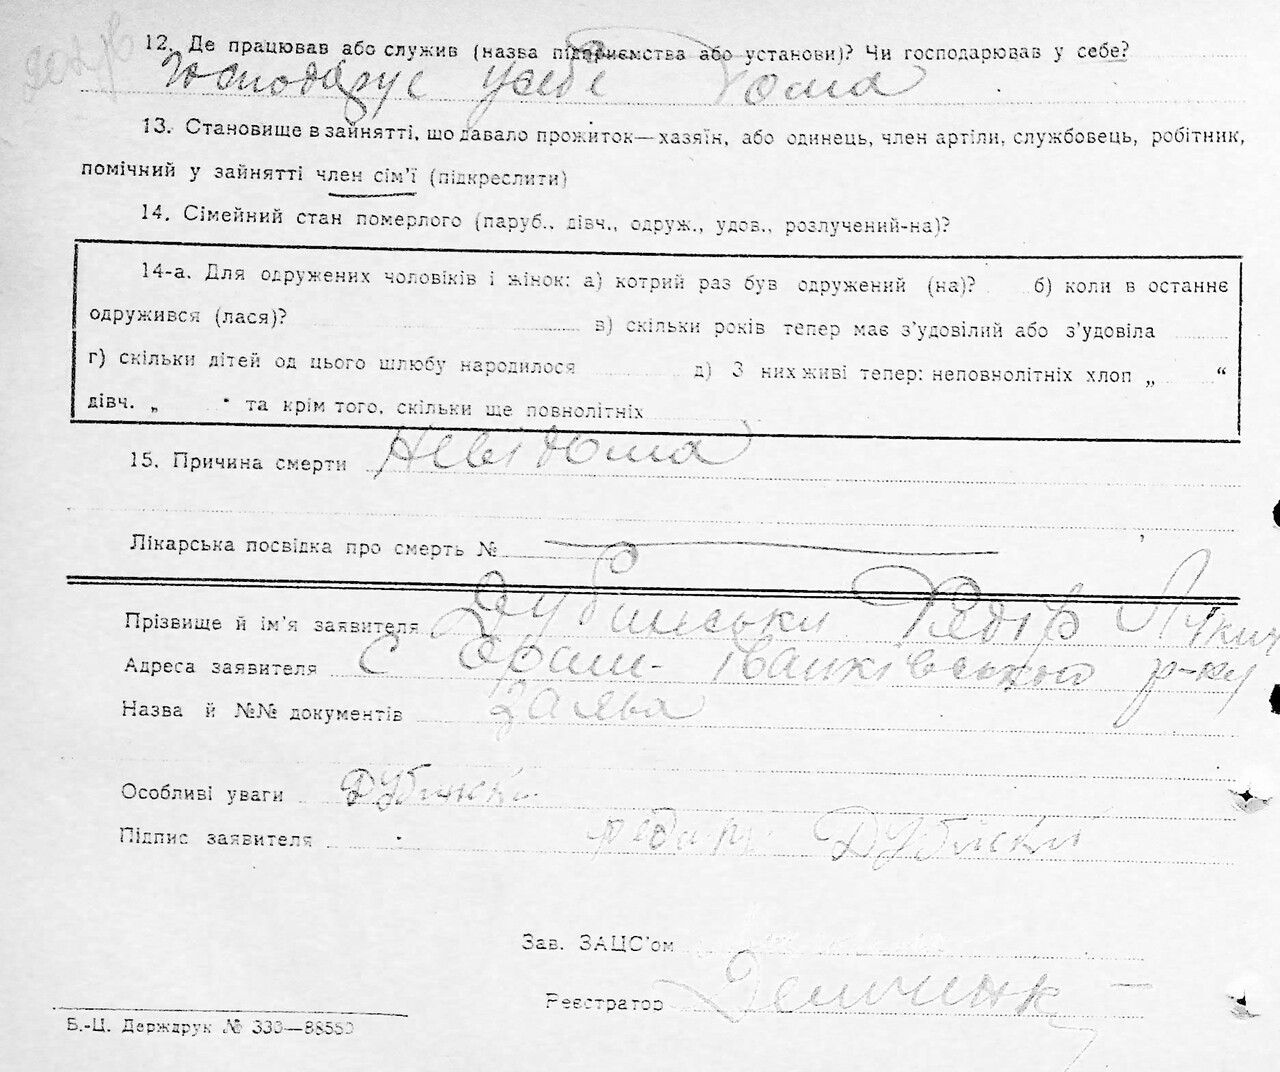 12. Де працював або служив (назва підприємства або установи)? Чи господарював у себе?
Господарує у себе дома
13. Становище в зайнятті, що давало прожиток—хазяїн, або одинець, член артіли, службовець, робітник,
помічний у зайнятті член сім'ї (підкреслити)
14. Сімейний стан померлого (паруб., дівч., одруж., удов., розлучений-на)?
14-а. Для одружених чоловіків і жінок: а) котрий раз був одружений (на)? б) коли в останнє
одружився (лася)? в) скільки років тепер має з'удовілий або з'удовіла
г) скільки дітей од цього шлюбу народилося д) З них живі тепер: неповнолітніх хлоп „ “
дівч. „ “ та крім того, скільки ще повнолітніх
15. Причина смерти Невідома
Лікарська посвідка про смерть №
Прізвище й ім'я заявителя Дубинськи Федір Лукич
Адреса заявителя С Іванківського р-ну
Назва й №№ документів Заява
Особливі уваги
Підпис заявителя
Зав. ЗАЦС'ом
Реєстратор
Б.-Ц. Держдрук № 330—88550